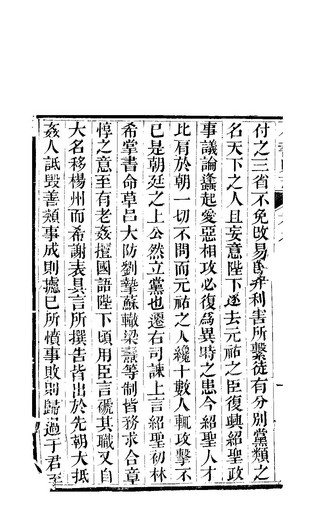 付之三省不免改易舊弄利害所繫徒有分別黨類之
名天下之人且妄意陛下遂去元祐之臣復興紹聖政
事議論蠭起愛惡相攻必復爲異時之患今紹聖人才
比肩於朝一切不問而元祐之人纔十數人輒攻擊不
已是朝廷之上公然立黨也遷右司諫上言紹聖初林
希掌書命草呂大防劉摯蘇轍梁燾等制皆務求合章
惇之意至有老姦擅國語陛下頃用臣言褫其職又自
大名移楊州而希謝表具言所撰告皆出於先朝大抵
姦人詆毀善類事成則攄已所憤事敗則歸過于君至